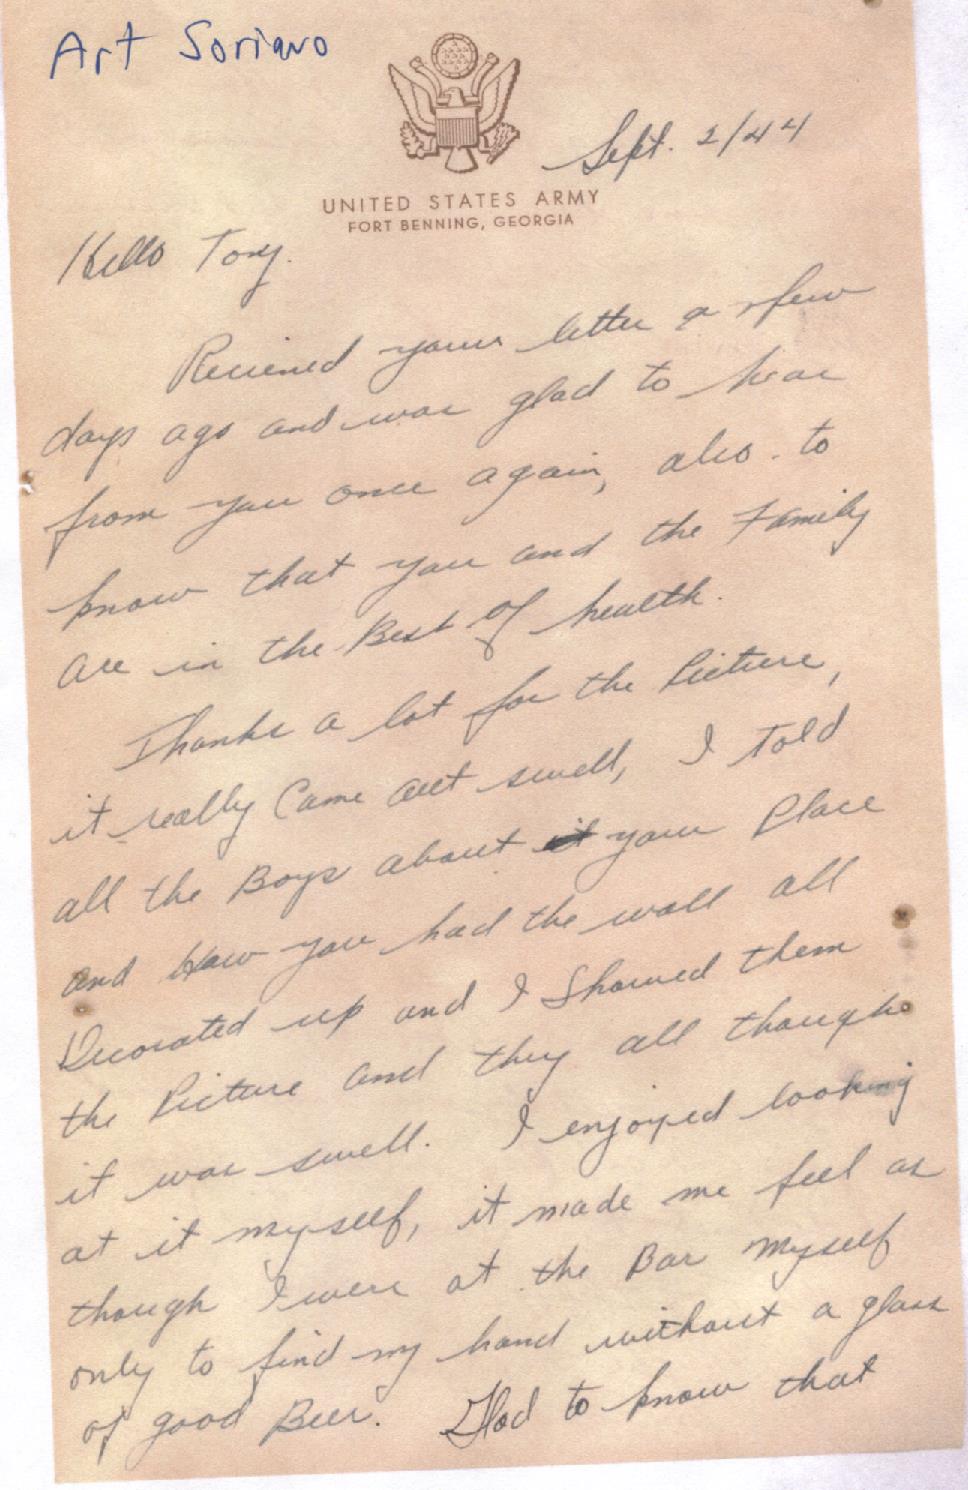 Art Soriano
Sept. 2/44
UNITED STATES ARMY
FORT BENNING, GEORGIA
Hello Tony.
Recieved your letter a few
days ago and was glad to hear
from you once again, also to
know that you and the Family
are in the Best of health.
Thanks a lot for the Picture,
it really Came out swell, I told
all the Boys about it your Place
and How you had the wall all
Decorated up and I Showed them
the Picture and they all though
it was swell. I enjoyed looking
at it myself, it made me feel as
though I were at the Bar myself
only to find my hand without a glass
of good Beer. Glad to know that